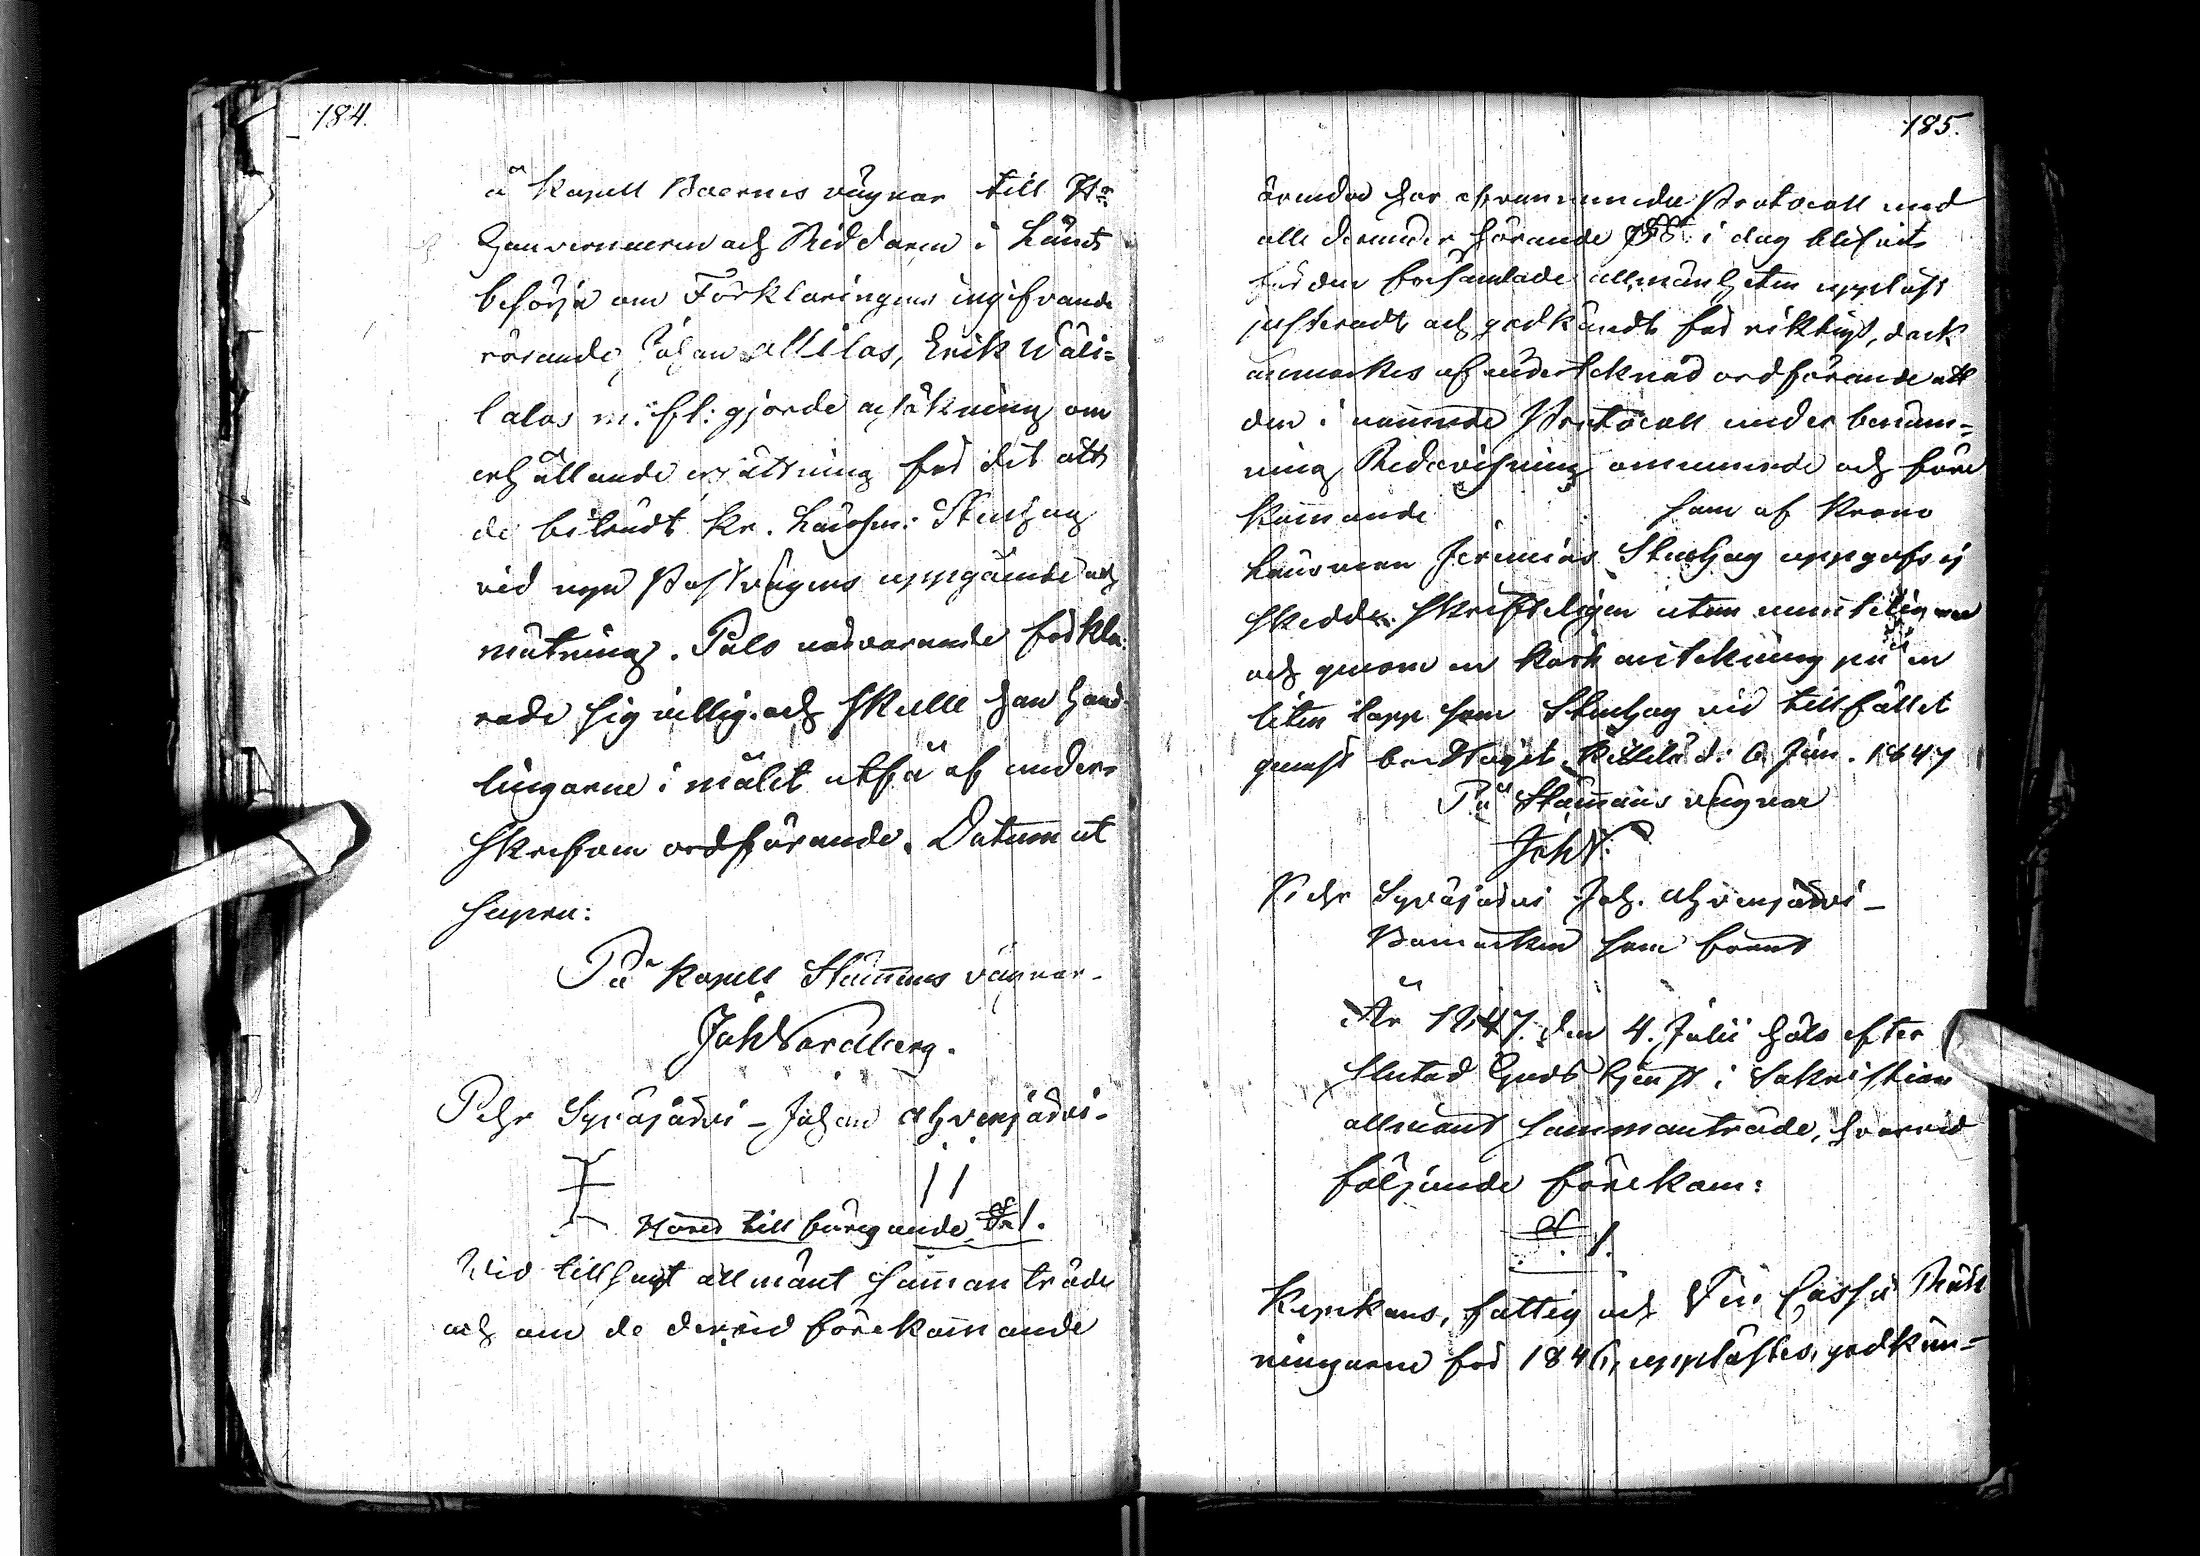 184.
å Kapell Boernes vägnar till Hr
Gouverneuren och Riddaren i Länets
beförja om Förklaringens ingifvande
rörande Johan Alilas, Erik Wäli=
lalas m: fl: gjorde ansökning om
erhållande ersättning för det att
de biträdt Kr. Länsm: Stenhag
vid nya Postvägens uppgående och
mätning. Pals närvarande förkla=
rade sig villig och skulle han hand=
lingarne i målet utfå af under=
skrefven ordförande. Datum ut
supra:
På Kapell Stämmans vägnar.
Joh Nordberg.
Pehr Syväjärvi – Johan Ahvenjärvi –
Hörer till föregående § 1.
Wid tillsagt allmänt samman träde
och om de dervid förekommande
185.
ärender har ofvannämnde Protocoll med
alla derunder hörande §§ i dag blifvit
för den församlade allmänheten uppläst
justeradt och godkändt för riktigt, dock
anmärkes af undertecknad ordförande att
den i nämnde Protocoll under benäm=
ning Redovisning omnämnde och före
kommande som af Krono
Länsman Jeremias Stenhag uppgafs ej
skedde skrifteligen utan muntligen
och genom en kort anteckning på en
liten lapp som Stenhag vid tillfället
genast borttagit. Kittilä d: 6 Jun. 1847
På Stämmans vägnar
Joh N.
Pehr Syväjärvi Joh. Ahvenjärvi –
Bomärken som förut
År 1847. den 4. Julii höls efter
slutad Guds tjenst i Sakristian
allmänt sammanträde, hvarvid
följande förekom:
§ 1.
Kyrkans, fattig och Vin Cassa Räk
ningarne för 1846, upplästes, godkän=